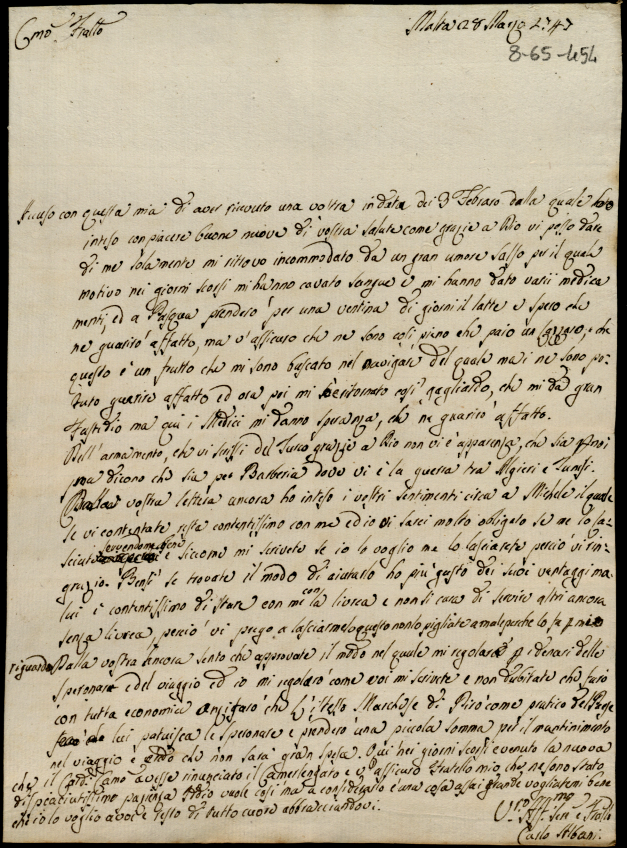 Cmo. Fratto
Malta 28 Marzo 1747
8-65-454
Accuso con questa mia di aver ricevuto una vostra in data dei 3 Febraro dalla quale ho
inteso con piacere buone nuove di vostra salute come grazie a Dio vi posso dare
di me solamente mi ritrovo incommodato da un gran umore salso per il quale
motivo nei giorni scorsi mi hanno cavato sangue e mi hanno dato varii medica
menti, ed a Pasqua prenderò per una ventina di giorni il latte e spero che
ne guarirò affatto, ma v'assicuro che ne sono così pieno che paio un lazzaro, e che
questo è un frutto che mi sono buscato nel navigare del quale mai ne sono po-
tuto guarire affatto ed ora poi mi è ritornato così gagliardo, che mi da gran
fastidio ma qui i Medici mi danno speranza, che ne guarirò affatto.
Dell'armamento, che vi scrissi del Turco grazie a Dio non vi è apparenza, che sia p noi
ma dicono che sia per Barberia dove vi è la guerra tra Algieri e Tunisi.
Dalla vostra lettera ancora ho inteso i vostri sentimenti circa a Michele il quale
se vi contentate resta contentissimo con me ed io vi sarei molto obligato se me lo la-
sciate servendomi bene e siccome mi scrivete se io lo voglio me lo lasciarete perciò vi rin-
grazio. Bensì se trovate il modo di aiutarlo ho più gusto dei suoi vantaggi ma
lui è contentissimo di stare con mi con la livrea e non si cura di servire altri ancora
senza livrea, perciò vi prego a lasciarmelo questo non lo pigliate a male perche lo fa p mio
riguardo Dalla vostra ancora sento che approvate il modo nel quale mi regolarò p i denari delle
speronare e del viaggio ed io mi regolarò come voi mi scrivete e non dubitate che farò
con tutta economia anzi farò che l'istesso Marchese di Pirò come pratico del Paese
lui patuisca le speronare e prenderò una piccola somma per il mantinimento
nel viaggio e vedo che non sarà gran spesa. Qui nei giorni scorsi è venuta la nuova
che il Cardle Camo avesse rinunciato il Camerlengato e vi assicuro Fratello mio che ne sono stato
di spiacutissimo pazienza Iddio vuole così ma a considerarlo è una cosa assai grande vogliatemi bene
che io lo voglio a voi e resto di tutto cuore abbracciandovi.
Vro Affmo
Aff. Ser. e Fratto
Carlo Albani.